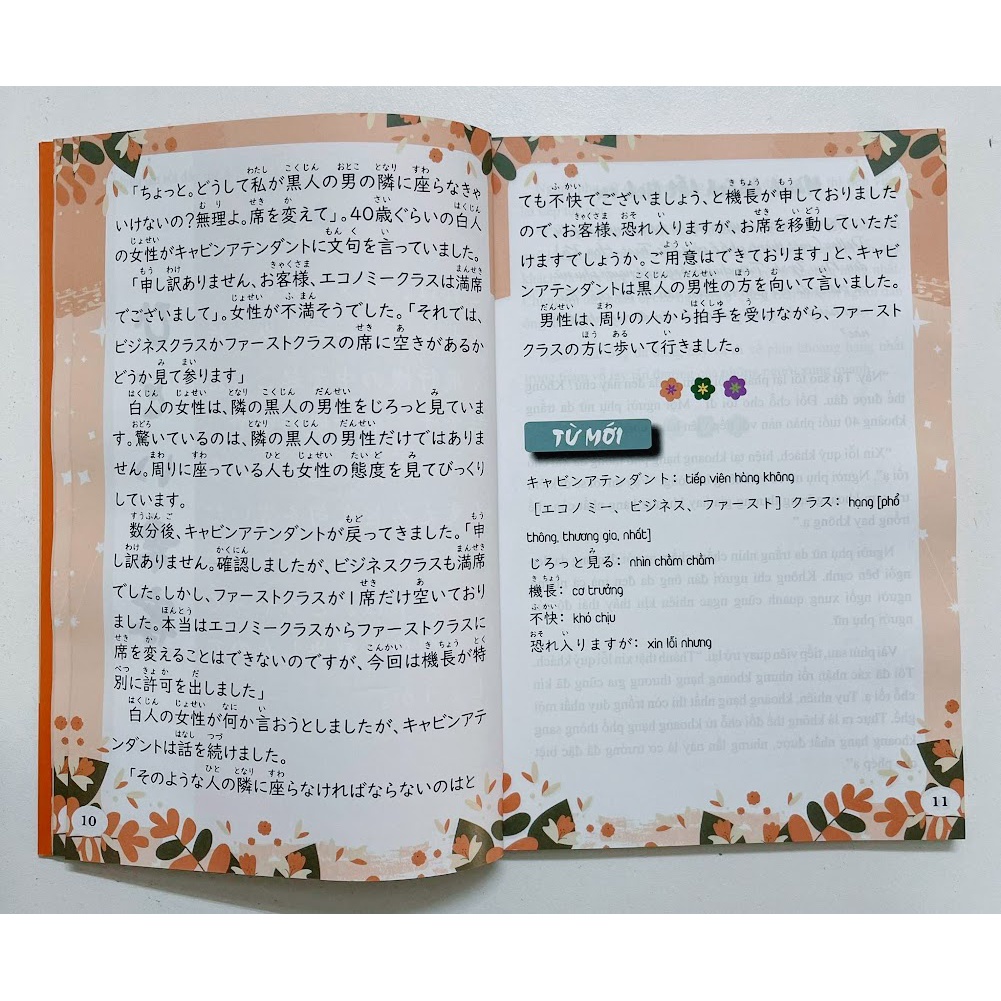 「ちょっと。どうして私が黒人の男の隣に座らなきゃ
いけないの?無理よ。席を変えて」。40歳ぐらいの白人
の女性がキャビンアテンダントに文句を言っていました。
「申し訳ありません、お客様、エコノミークラスは満席
でございまして」。女性が不満そうでした。「それでは、
ビジネスクラスかファーストクラスの席に空きがあるか
どうか見て参ります」
白人の女性は、隣の黒人の男性をじろっと見ていま
す。驚いているのは、隣の黒人の男性だけではありま
せん。周りに座っている人も女性の態度を見てびっくり
しています。
数分後、キャビンアテンダントが戻ってきました。「申
し訳ありません。確認しましたが、ビジネスクラスも満席
でした。しかし、ファーストクラスが1席だけ空いており
ました。本当はエコノミークラスからファーストクラスに
席を変えることはできないのですが、今回は機長が特
別に許可を出しました」
白人の女性が何か言おうとしましたが、キャビンアテ
ンダントは話を続けました。
「そのような人の隣に座らなければならないのはと
10
ても不快でございましょう、と機長が申しておりました
ので、お客様、恐れ入りますが、お席を移動していただ
けますでしょうか。ご用意はできております」と、キャビ
ンアテンダントは黒人の男性の方を向いて言いました。
男性は、周りの人から拍手を受けながら、ファースト
クラスの方に歩いて行きました。
TỪ MỚI
キャビンアテンダント: tiếp viên hàng không
[エコノミー、ビジネス、ファースト] クラス: hạng [phổ
thông, thương gia, nhất]
じろっと見る: nhìn chằm chằm
機長: cơ trưởng
不快: khó chịu
恐れ入りますが: xin lỗi nhưng
11